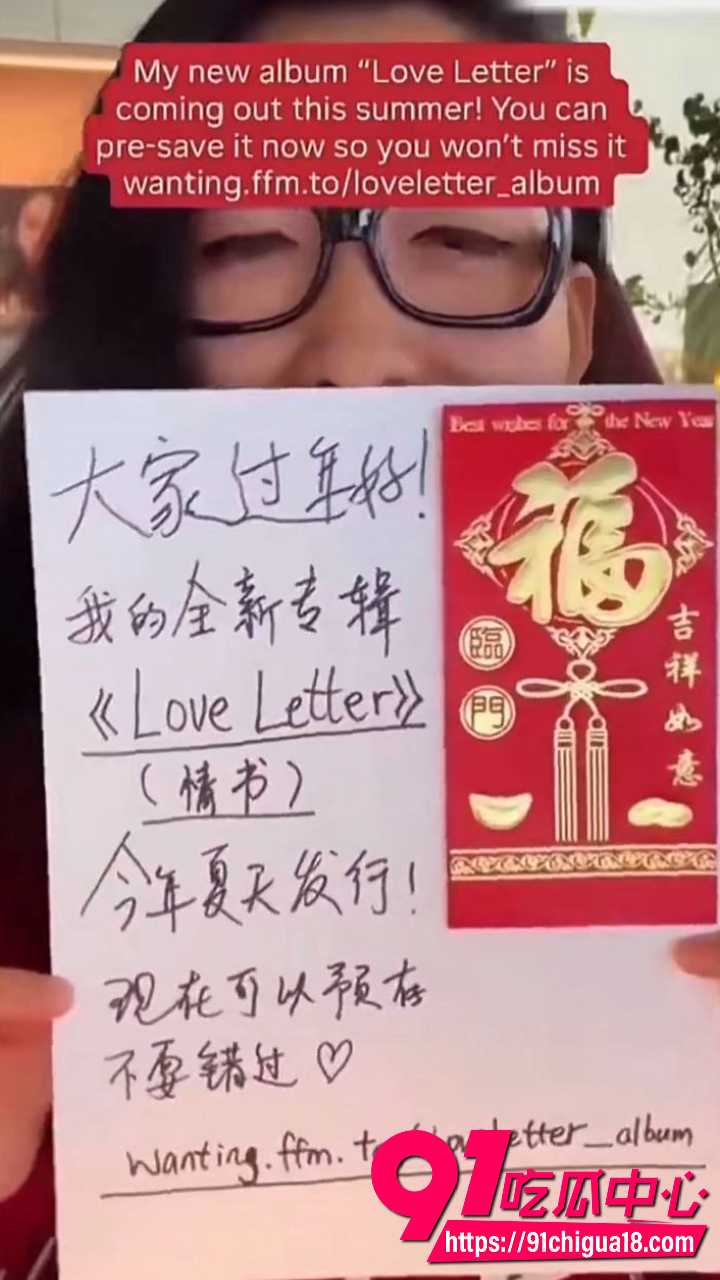 My new album “Love Letter” is
coming out this summer! You can
pre-save it now so you won’t miss it
wanting.ffm.to/loveletter_album
大家过年好!
我的全新专辑
《Love Letter》
(情书)
今年夏天发行!
现在可以预存
不要错过♡
wanting.ffm.to/loveletter_album
Best wishes for the New Year
福
臨
門
吉祥如意
91吃瓜中心
https://91chigua18.com